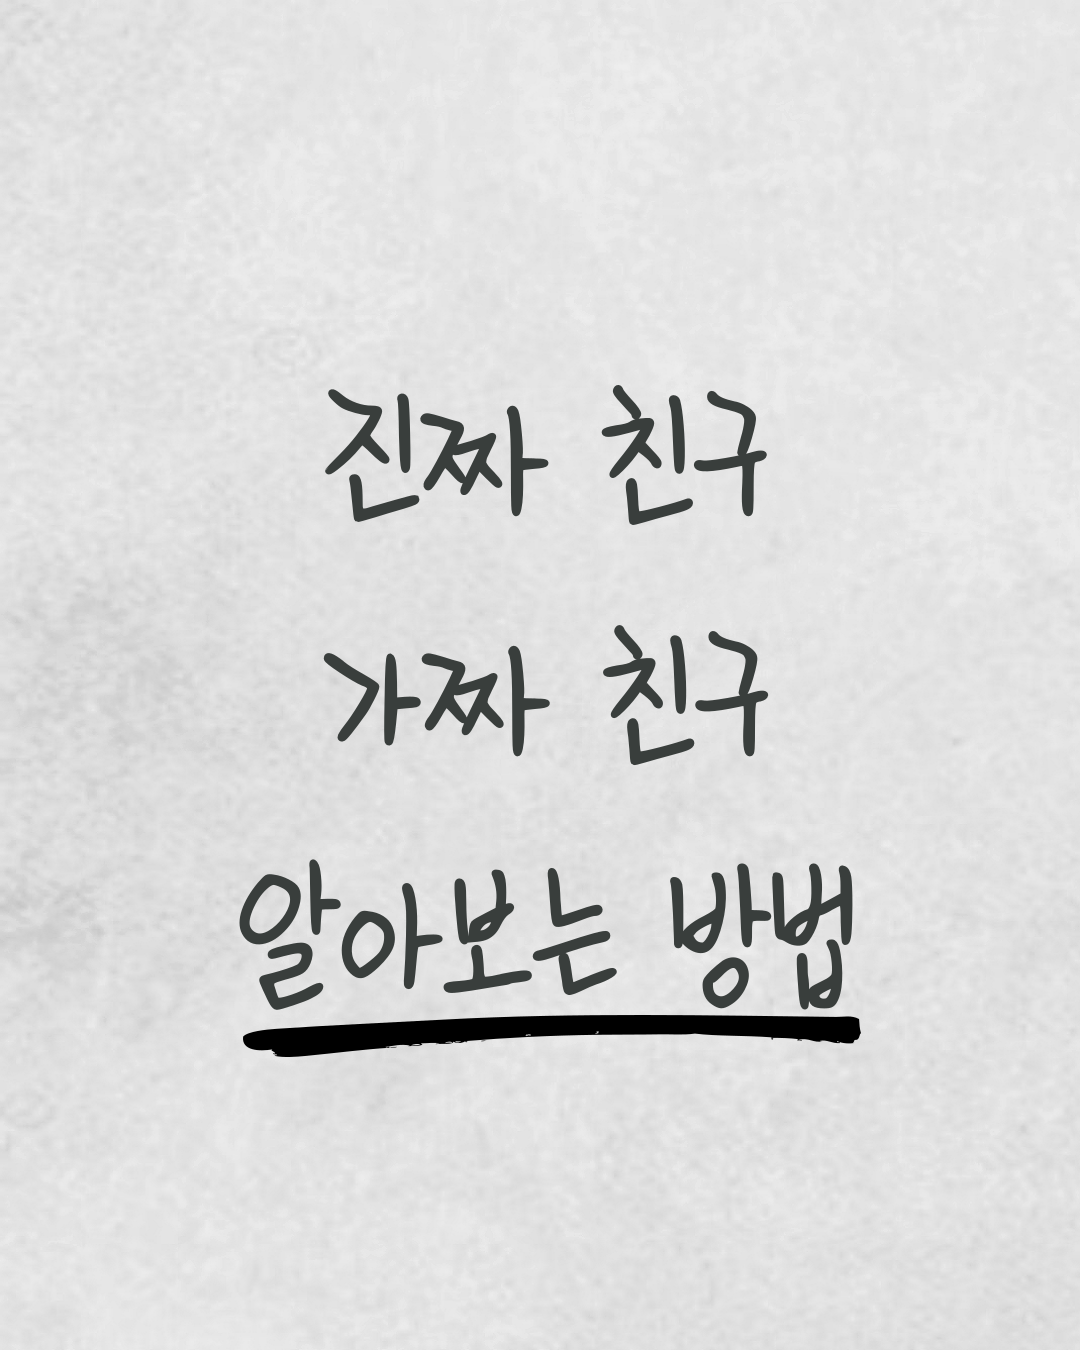 진짜 친구
가짜 친구
알아보는 방법